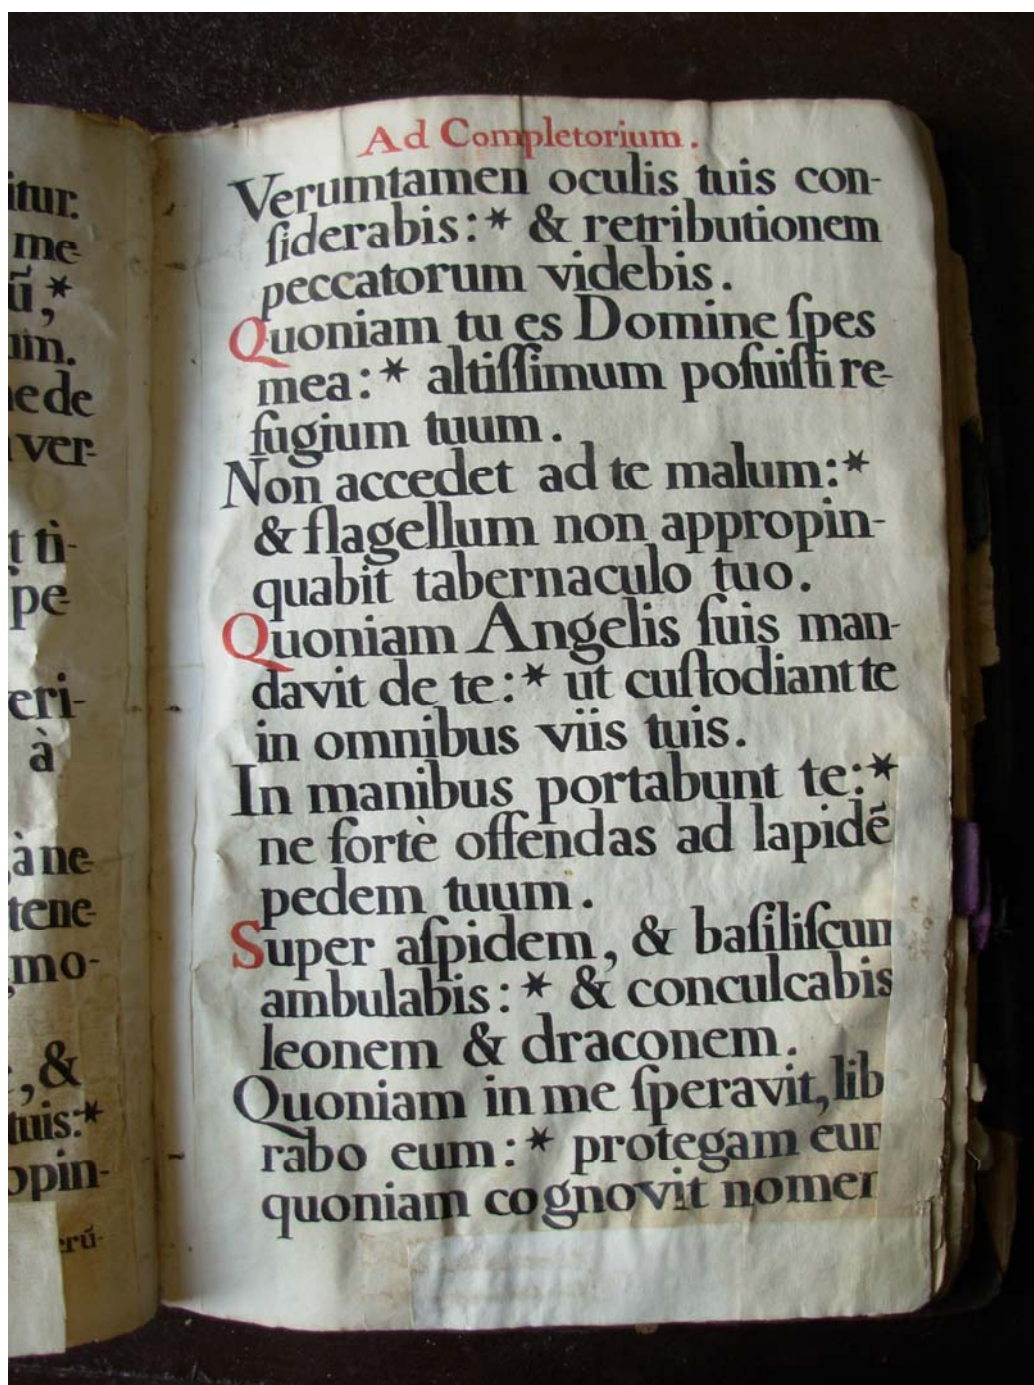 itur.
me-
ũ,*
im.
ne de
ver-
t ti-
pe
eri-
à
à ne-
tene-
mo-
, &
tuis:*
opin-
erũ-
Ad Completorium.
Verumtamen oculis tuis con-
ſiderabis:* & retributionem
peccatorum videbis.
Quoniam tu es Domine ſpes
mea:* altiſſimum poſuiſti re-
fugium tuum.
Non accedet ad te malum:*
& flagellum non appropin-
quabit tabernaculo tuo.
Quoniam Angelis ſuis man-
davit de te:* ut cuſtodiant te
in omnibus viis tuis.
In manibus portabunt te:*
ne fortè offendas ad lapidẽ
pedem tuum.
Super aſpidem, & baſiliſcum
ambulabis:* & conculcabis
leonem & draconem.
Quoniam in me ſperavit, lib
rabo eum:* protegam eum
quoniam cognovit nomen